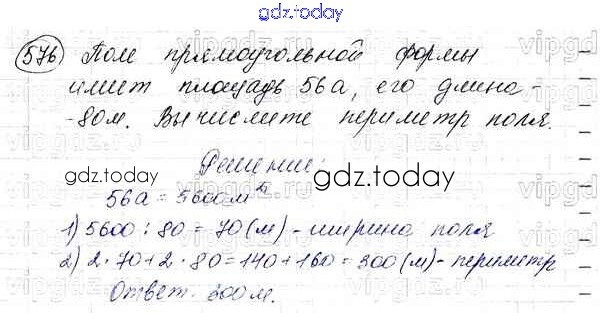 gdz.today
576 Поле прямоугольной формы
имеет площадь 56а, его длина -
- 80м. Вычислите периметр поля.
Решение:
gdz.today
gdz.today
56а = 5600м²
1) 5600 : 80 = 70 (м) - ширина поля
2) 2·70+2·80=140+160=300(м)-периметр
Ответ. 300м.